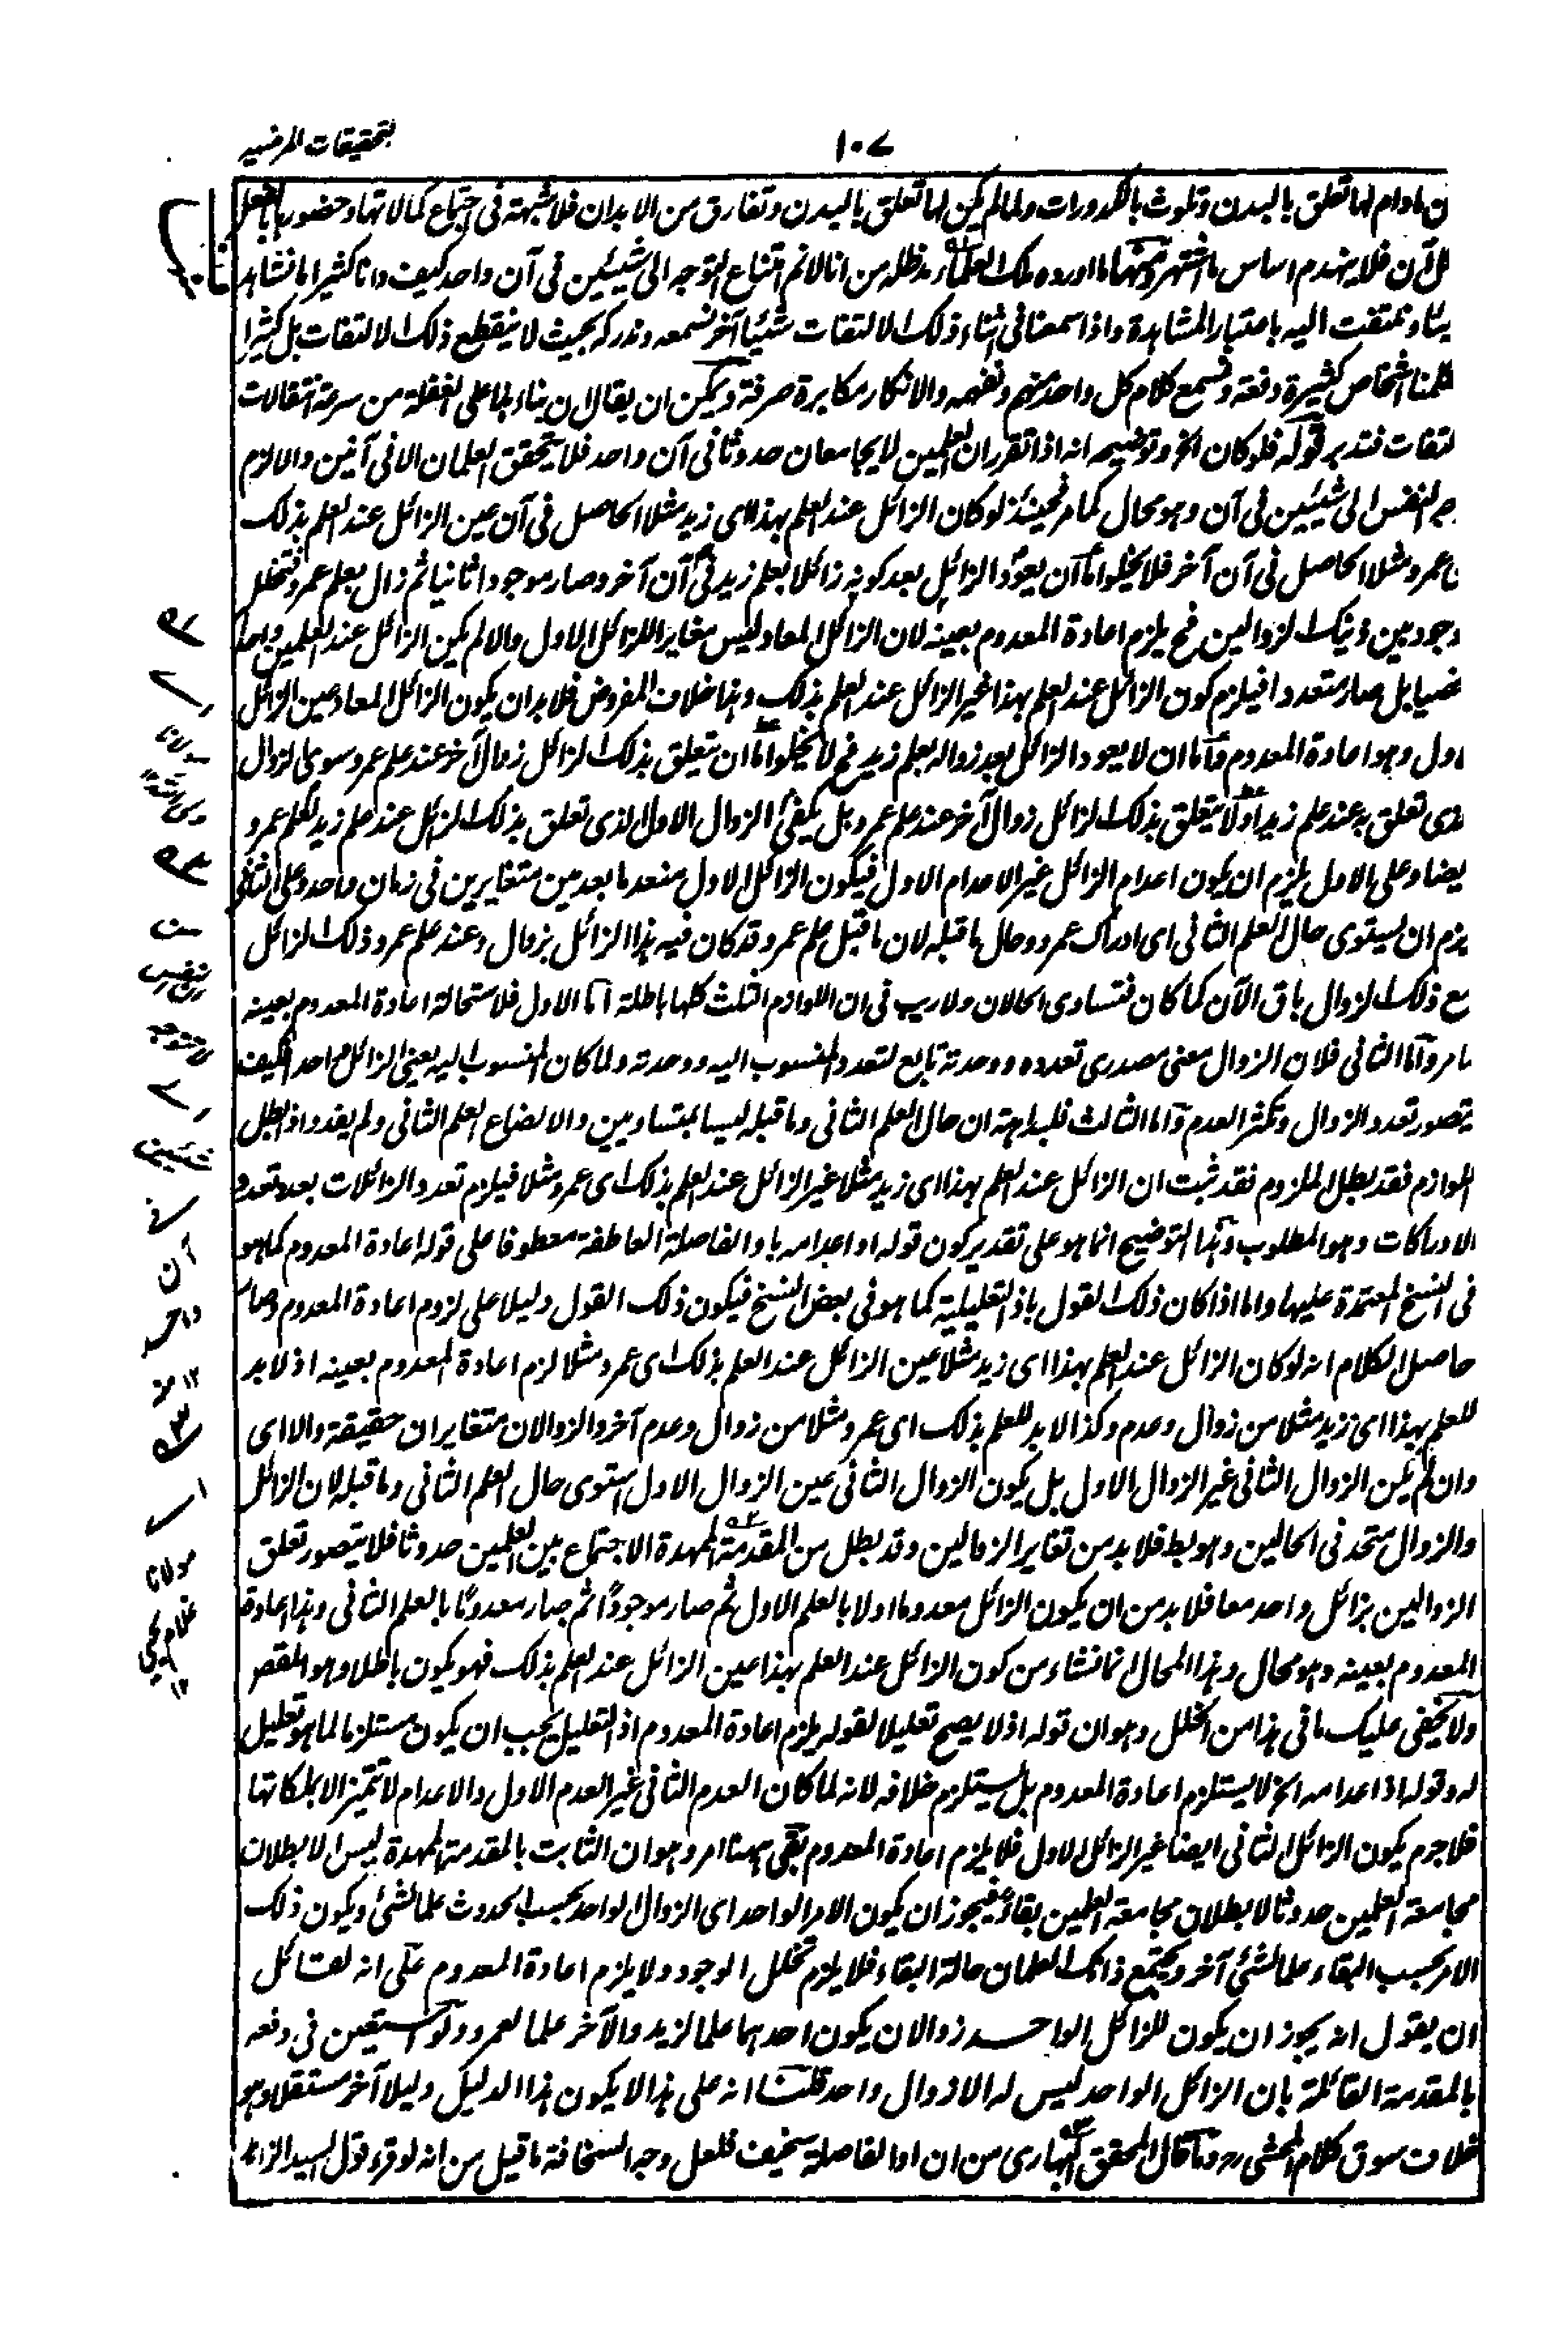 ١٠٧
بتحقيقات المرضيه
ن مادام لها تعلق بالبدن وتلوث بالكدورات ولما لم يكن لها تعلق بالبدن وتفارق من الابدان فلا شبهة فى اجتماع كمالاتها وحضورها بالفعل
كل آن فلا ينهدم اساس ما اشتهر ومنها ما اورده ملك العلماء مد ظله من انا لا نم امتناع التوجه الى شيئين فى آن واحد كيف وانا كثيرا ما نشاهد
يئا ونلتفت اليه باعتبار المشاهدة واذا سمعنا فى اثناء ذلك الالتفات شيئا آخر نسمعه وندركه بحيث لا ينقطع ذلك الالتفات بل كثيرا
كلمنا اشخاص كثيرة دفعة ونسمع كلام كل واحد منهم ونفهمه والانكار مكابرة صرفة ويمكن ان يقال ان بناء هذا على الغفلة من سرعة انتقالات
لتفات فتدبر قوله فلو كان الخ وتوضيحه انه اذا تقرر ان العلمين لا يجامعان حدوثا فى آن واحد فلا يتحقق العلمان الا فى آنين والا لزم
جه النفس الى شيئين فى آن وهو محال كما مر فحينئذ لو كان الزائل عند العلم بهذا اى زيد مثلا الحاصل فى آن عين الزائل عند العلم بذلك
ى عمرو مثلا الحاصل فى آن آخر فلا يخلو اما ان يعود الزائل بعد كونه زائلا بعلم زيد فى آن آخر وصار موجودا ثانيا ثم زال بعلم عمرو فتخلل
وجود بين ذينك الزوالين فح يلزم اعادة المعدوم بعينه لان الزائل المعاد ليس مغايرا للزائل الاول والا لم يكن الزائل عند العلمين واحدا
خصيا بل صار متعددا فيلزم كون الزائل عند العلم بهذا غير الزائل عند العلم بذلك وهذا خلاف المفروض فلا بد ان يكون الزائل المعاد عين الزائل
اول وهو اعادة المعدوم واما ان لا يعود الزائل بعد زواله بعلم زيد فح لا يخلو اما ان يتعلق بذلك الزائل زوال آخر عند علم عمرو سوى الزوال
لذى تعلق به عند علم زيد او لا يتعلق بذلك الزائل زوال آخر عند علم عمرو بل يكفى الزوال الاول الذى تعلق بذلك الزائل عند علم زيد لعلم عمرو
يضا وعلى الاول يلزم ان يكون اعدام الزائل غير الاعدام الاول فيكون الزائل الاول منعدما بعدمين متغايرين فى زمان واحد وعلى الثانى
يلزم ان يستوى حال العلم الثانى اى ادراك عمرو وحال ما قبله لان ما قبل علم عمرو قد كان فيه هذا الزائل بزوال وعند علم عمرو ذلك الزائل
مع ذلك الزوال باق الآن كما كان فتساوى الحالان ولا ريب فى ان اللوازم الثلث كلها باطلة اما الاول فلاستحالة اعادة المعدوم بعينه
ما مر واما الثانى فلان الزوال معنى مصدرى تعدده ووحدته تابع لتعدد المنسوب اليه ووحدته ولما كان المنسوب اليه يعنى الزائل واحدا فكيف
يتصور تعدد الزوال وتكثر العدم واما الثالث فلبداهة ان حال العلم الثانى وما قبله ليسا بمتساويين والا لضاع العلم الثانى ولم يفد واذا بطل
اللوازم فقد بطل الملزوم فقد ثبت ان الزائل عند العلم بهذا اى زيد مثلا غير الزائل عند العلم بذلك اى عمرو مثلا فيلزم تعدد الزائلات بعدد تعدد
الادراكات وهو المطلوب وهذا التوضيح انما هو على تقدير كون قوله او اعدامه باو الفاصلة العاطفة معطوفا على قوله اعادة المعدوم كما هو
فى النسخ المعتمدة عليها واما اذا كان ذلك القول باذ التعليلية كما هو فى بعض النسخ فيكون ذلك القول دليلا على لزوم اعادة المعدوم وصار
حاصل الكلام انه لو كان الزائل عند العلم بهذا اى زيد مثلا عين الزائل عند العلم بذلك اى عمرو مثلا لزم اعادة المعدوم بعينه اذ لا بد
للعلم بهذا اى زيد مثلا من زوال وعدم وكذا لا بد للعلم بذلك اى عمرو مثلا من زوال وعدم آخر والزوالان متغايران حقيقة والا اى
وان لم يكن الزوال الثانى غير الزوال الاول بل يكون الزوال الثانى عين الزوال الاول استوى حال العلم الثانى وما قبله لان الزائل
والزوال متحد فى الحالين وهو بط فلا بد من تغاير الزوالين وقد بطل من المقدمة الممهدة الاجتماع بين العلمين حدوثا فلا يتصور تعلق
الزوالين بزائل واحد معا فلا بد من ان يكون الزائل معدوما اولا بالعلم الاول ثم صار موجودا ثم صار معدوما بالعلم الثانى وهذا اعادة
المعدوم بعينه وهو محال وهذا المحال انما نشاء من كون الزائل عند العلم بهذا عين الزائل عند العلم بذلك فهو يكون باطلا وهو المقصر
ولا يخفى عليك ما فى هذا من الخلل وهو ان قوله اذ لا يصح تعليلا لقوله يلزم اعادة المعدوم اذ التعليل يجب ان يكون مستلزما لما هو تعليل
له وقوله اذ اعدامه الخ لا يستلزم اعادة المعدوم بل يستلزم خلافه لانه لما كان العدم الثانى غير العدم الاول والاعدام لا تتميز الا بملكاتها
فلا جرم يكون الزائل الثانى ايضا غير الزائل الاول فلا يلزم اعادة المعدوم بقى ههنا امر وهو ان الثابت بالمقدمة الممهدة ليس الا بطلان
مجامعة العلمين حدوثا لا بطلان مجامعة العلمين بقاء فيجوز ان يكون الامر الواحد اى الزوال الواحد بحسب الحدوث علما لشئ ويكون ذلك
الامر بحسب البقاء علما لشئ آخر ويجتمع ذانك العلمان حالة البقاء فلا يلزم تخلل الوجود ولا يلزم اعادة المعدوم على انه لقائل
ان يقول انه يجوز ان يكون للزائل الواحد زوالان يكون احدهما علما لزيد والآخر علما لعمرو ولو استعين فى دفعه
بالمقدمة القائلة بان الزائل الواحد ليس له الا زوال واحد قلنا انه على هذا لا يكون هذا الدليل دليلا آخر مستقلا وهو
خلاف سوق كلام المحشى رہ وما قال المحقق البهارى من ان او الفاصلة سخيف فلعل وجه السخافة ما قيل من انه لو قرء قول السيد الزاهد
مولانا
ان النفس
لا تتوجه
شيئين
فى
آن
واحد
١٢ منہ
مولانا
غلام يحيى
١٢